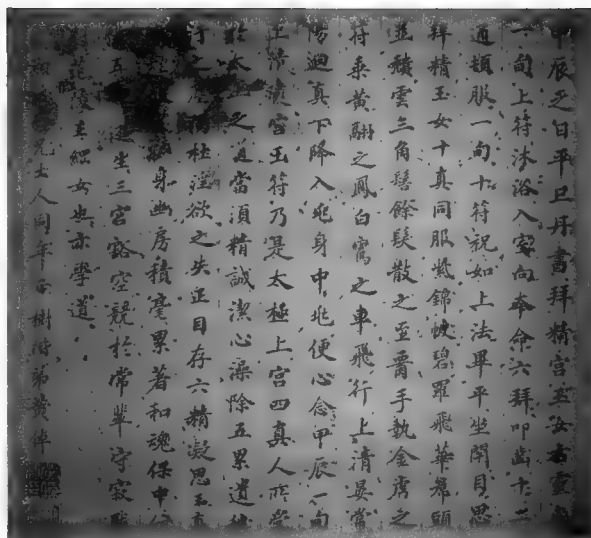 甲辰之日平旦丹書拜精宮玉女右靈
一旬上符沐浴入室向本命六拜叩齒十二
通頓服一旬十符祝如上法畢平坐閉目思
拜精玉女十真同服紫錦帔碧羅飛華裙頭
並頹雲三角髻餘髮散之至腰手執金虎之
符乘黃翮之鳳白鸞之車飛行上清晏常
陽迴真下降入兆身中兆便心念甲辰一旬
上清瓊宮玉符乃是太極上宮四真人所受
於太玄之道當須精誠潔心澡除五累遺穢
汙之塵濁杜淫欲之失正目存六精凝思玉真
身幽房積毫累著和魂保中
五遊生三宮豁空競於常輩守寂
范陵王綱女也亦學道
兄士人同年